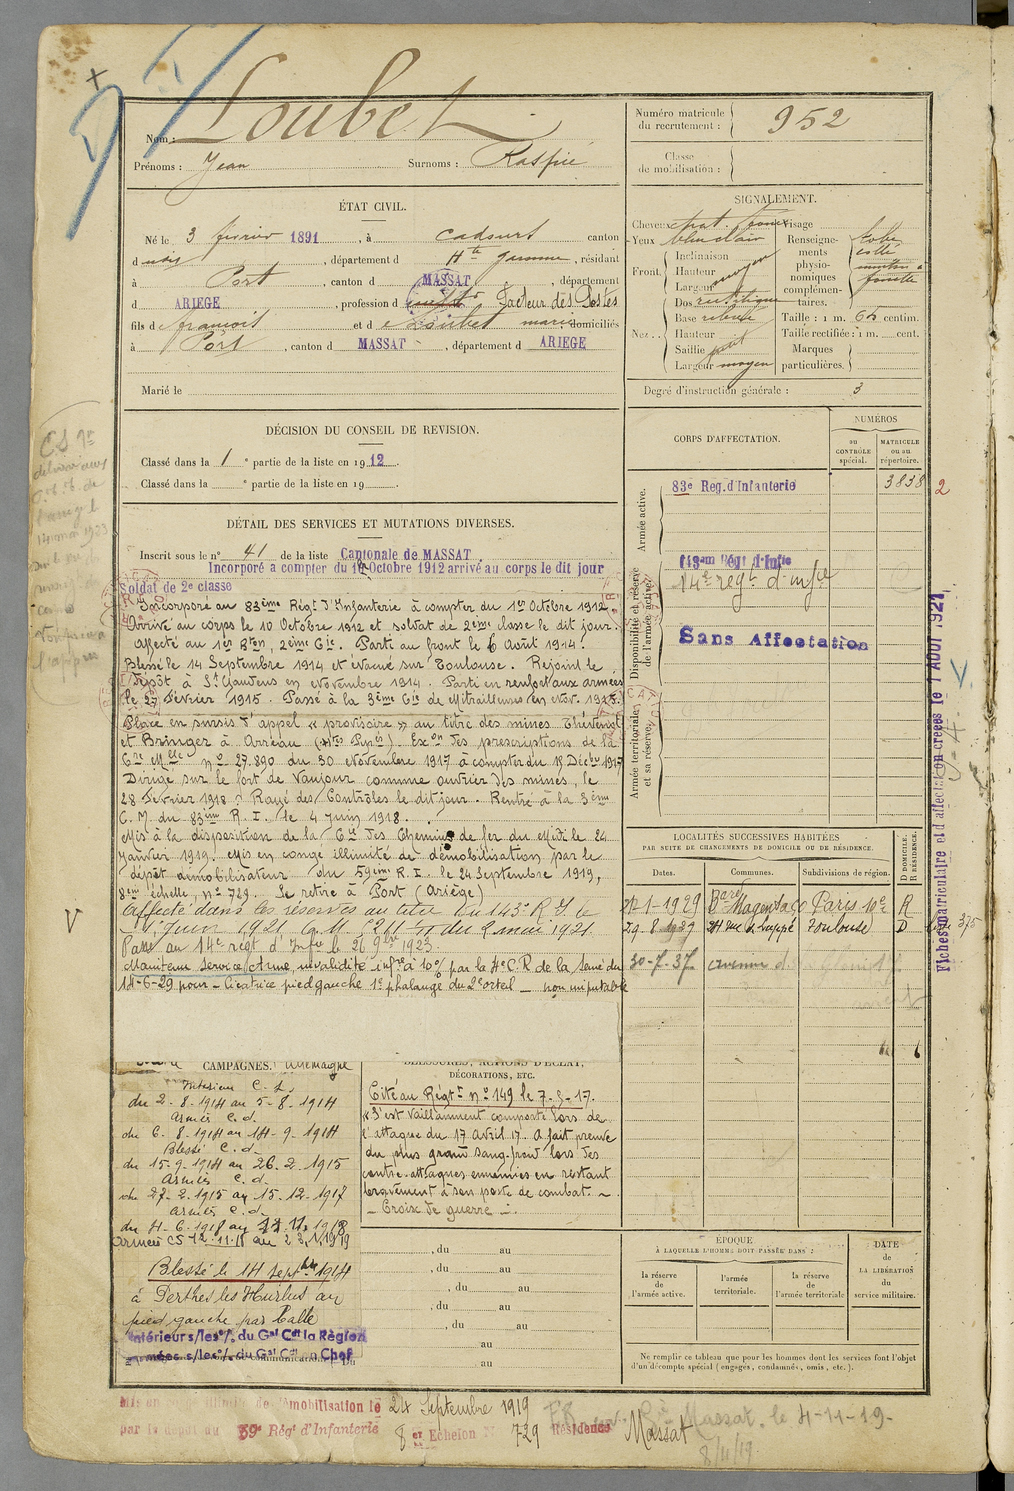 Nom : Loubet
Prénoms : Jean Surnoms : Raspié
Numéro matricule du recrutement : 952
Classe de mobilisation :
ÉTAT CIVIL.
Né le 3 février 1891, à Cadours canton
d udit, département d Hte Garonne, résidant
à Port, canton d MASSAT, département
d ARIEGE, profession d Facteur des Postes
fils de François et de Loubet Marie domiciliés
à Port, canton d MASSAT, département d ARIEGE
Marié le
SIGNALEMENT.
Cheveux chat. foncé visage
Yeux bleu clair
Front. Inclinaison
Hauteur moyen
Largeur
Nez. Dos rectiligne
Base relevée
Hauteur
Saillie petit
Largeur moyen
Renseignements physionomiques complémentaires.
lobe
collé
menton à
fossette
Taille : 1 m. 62 centim.
Taille rectifiée : 1 m. cent.
Marques particulières.
Degré d'instruction générale : 3
DÉCISION DU CONSEIL DE REVISION.
Classé dans la 1e partie de la liste en 1912.
Classé dans la e partie de la liste en 19
DÉTAIL DES SERVICES ET MUTATIONS DIVERSES.
Inscrit sous le n° 41 de la liste Cantonale de MASSAT
Incorporé a compter du 1er Octobre 1912 arrivé au corps le dit jour
Soldat de 2e classe
Incorporé au 83ème Régt d'Infanterie à compter du 1er Octobre 1912
Arrivé au corps le 10 Octobre 1912 et soldat de 2ème classe le dit jour.
Affecté au 1er Bton, 2ème Cie. Parti au front le 6 Août 1914.
Blessé le 14 Septembre 1914 et évacué sur Toulouse. Rejoint le
Dépôt à St Gaudens en Novembre 1914. Parti en renfort aux armées
le 27 Février 1915. Passé à la 3ème Cie de Mitrailleuse en Nov. 1915.
Placé en sursis d'appel « provisoire » au titre des mines Thévenist
et Bringer à Arreau (Htes Pyr). Exon des prescriptions de la
Cre Mlle n° 27.890 du 30 Novembre 1917 à compter du 18 Décbre 1917
Dirigé sur le fort de Vaujour comme ouvrier des mines, le
28 Février 1918 : Rayé des Contrôles le dit jour. Rentré à la 3ème
C. M. du 83ème R. I. le 4 Juin 1918.
Mis à la disposition de la Cie des Chemins de fer du Midi le 24
Janvier 1919. Mis en congé illimité de démobilisation par le
dépôt démobilisateur du 59ème R. I. le 24 Septembre 1919,
8em échelle, n° 729. Se retire à Port (Ariège)
Affecté dans les réserves au titre du 143e R. I. le
1 Juin 1921
Passé au 14e régt d'Infie le 26 9bre 1923.
Maintenu service armé, invalidité infre à 10% par la 4e C.R de la Seine du
14-6-29 pour - Cicatrice pied gauche 1e phalange du 2e orteil - non imputable
CORPS D'AFFECTATION.
NUMÉROS
AU CONTRÔLE spécial.
MATRICULE ou au répertoire.
Armée active.
83e Reg. d'Infanterie 3838 2
Disponibilité et réserve de l'armée active.
143em Régt d'Infie
14e regt d'Infie
Sans Affectation
Armée territoriale et sa réserve.
Fiches matriculaire et d'affectation créées le 1 AOUT 1921
LOCALITÉS SUCCESSIVES HABITÉES
PAR SUITE DE CHANGEMENTS DE DOMICILE OU DE RÉSIDENCE.
Dates. Communes. Subdivisions de région. D DOMICILE. R RÉSIDENCE.
Bd Magenta Paris 10e R
29-8-1929 Toulouse D
30-7-37
CAMPAGNES. Allemagne
Intérieur C. S.
du 2-8-1914 au 5-8-1914
Armées C. d.
du 6-8-1914 au 14-9-1914
Blessé C. d.
du 15-9-1914 au 26-2-1915
Armées C. d.
du 27-2-1915 au 15-12-1917
Armées C. d.
du 4-6-1918 au 11.11.1918
Armées CS 12.11.18 au 23.1.1919
Blessé le 14 Septbre 1914
à Perthes les Hurlus au
pied gauche par balle
Intérieur s/les o/. du Gal Cdt la Région
Armées s/les o/. du Gal Cdt en Chef
BLESSURES, ACTIONS D'ÉCLAT, DÉCORATIONS, ETC.
Cité au Régt n° 149 le 7-5-17.
« S'est vaillamment comporté lors de
l'attaque du 17 Avril 17. A fait preuve
du plus grand sang-froid lors des
contre-attaques ennemies en restant
bravement à son poste de combat.
- Croix de guerre -
, du au
, du au
, du au
, du au
, du au
au
au
ÉPOQUE
À LAQUELLE L'HOMME DOIT PASSER DANS :
la réserve de l'armée active.
l'armée territoriale.
la réserve de l'armée territoriale
DATE de LA LIBÉRATION du service militaire.
Ne remplir ce tableau que pour les hommes dont les services font l'objet
d'un décompte spécial (engagés, condamnés, omis, etc.).
Mis en congé illimité de démobilisation le 24 Septembre 1919
par le dépôt du 59e Régt d'Infanterie 8er Echelon N° 729 Résidence Massat
Massat. le 4-11-19.
8/11/19.